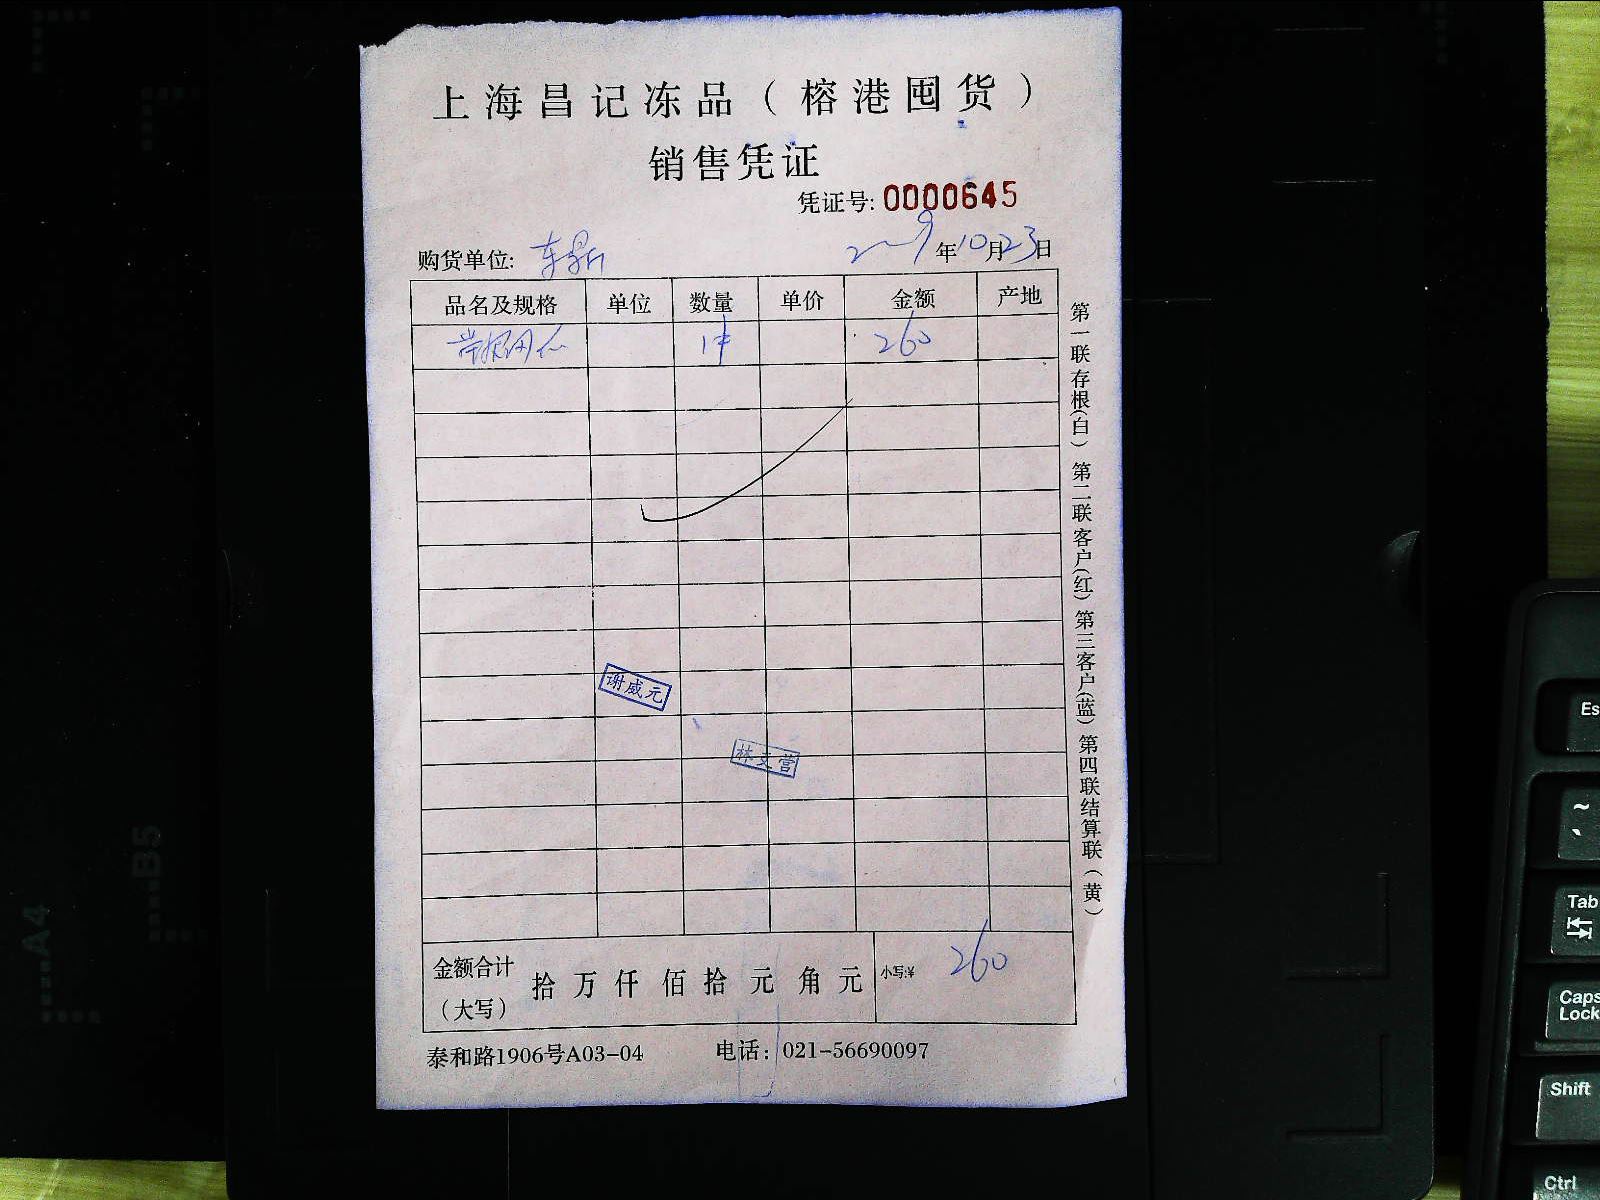 上海昌记冻品（榕港囤货）
销售凭证
凭证号: 0000645
购货单位: 东鼎 2009年10月23日
品名及规格 单位 数量 单价 金额 产地
1件 260
谢威元
林文营
金额合计（大写） 拾 万 仟 佰 拾 元 角 元 小写:¥ 260
泰和路1906号A03-04 电话: 021-56690097
第一联存根(白) 第二联客户(红) 第三客户(蓝) 第四联结算联(黄)
A4
B5
Es
~
Tab
Caps Lock
Shift
Ctrl